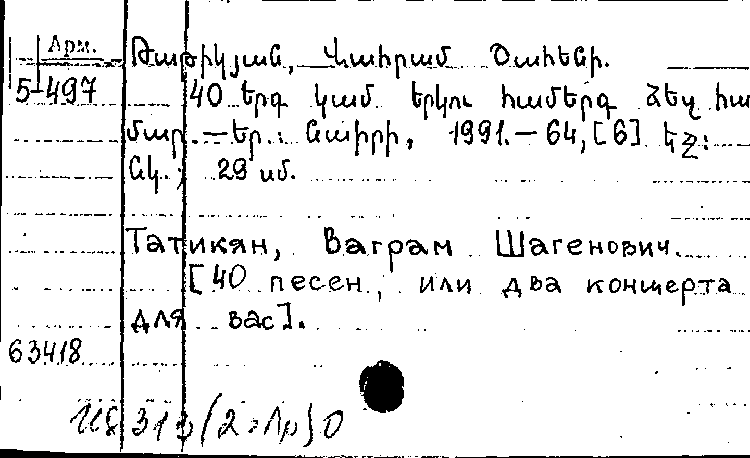 Арм.
5-497
Թաթիկյան, Վահրամ Շահենի.
40 երգ կամ երկու համերգ ձեզ հա
մար.—Եր.: Նաիրի, 1991.—64,[6] եջ:
նկ.; 29 սմ.
Татикян, Ваграм Шагенович.
[40 песен, или два концерта
для вас].
63418